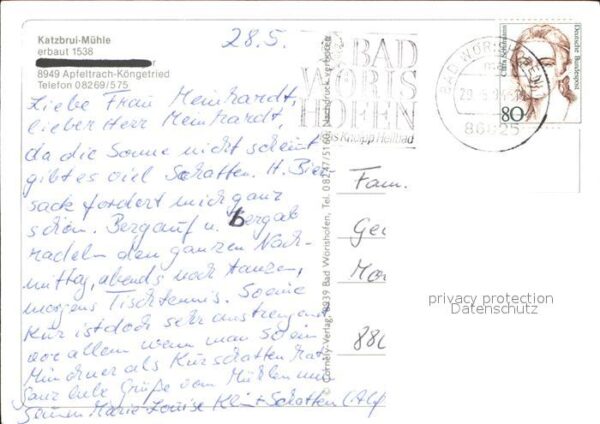 Katzbrui-Mühle
erbaut 1538
8949 Apfeltrach-Köngetried
Telefon 08269/575
28.5.
BAD
WÖRIS
HOFEN
Kneipp Heilbad
BAD WÖRISHOFEN
86825
Clara Schumann
Deutsche Bundespost
80
Liebe Frau Meinhardt,
lieber Herr Meinhardt,
da die Sonne nicht scheint
gibt es viel Schatten. H. Bier
sack fordert mich ganz
schön. Bergauf u. bergab
radeln den ganzen Nach-
mittag, abends noch tanzen,
morgens Tischtennis. So eine
Kur ist doch sehr anstrengend
vor allem wenn man so ein
Münchner als Kurschatten hat.
Ganz liebe Grüße vom Mühlen
Marie-Louise + Schatten
Cornely-Verlag, 8939 Bad Wörishofen, Tel. 08247/5160, Nachdruck verboten
Fam.
privacy protection
Datenschutz